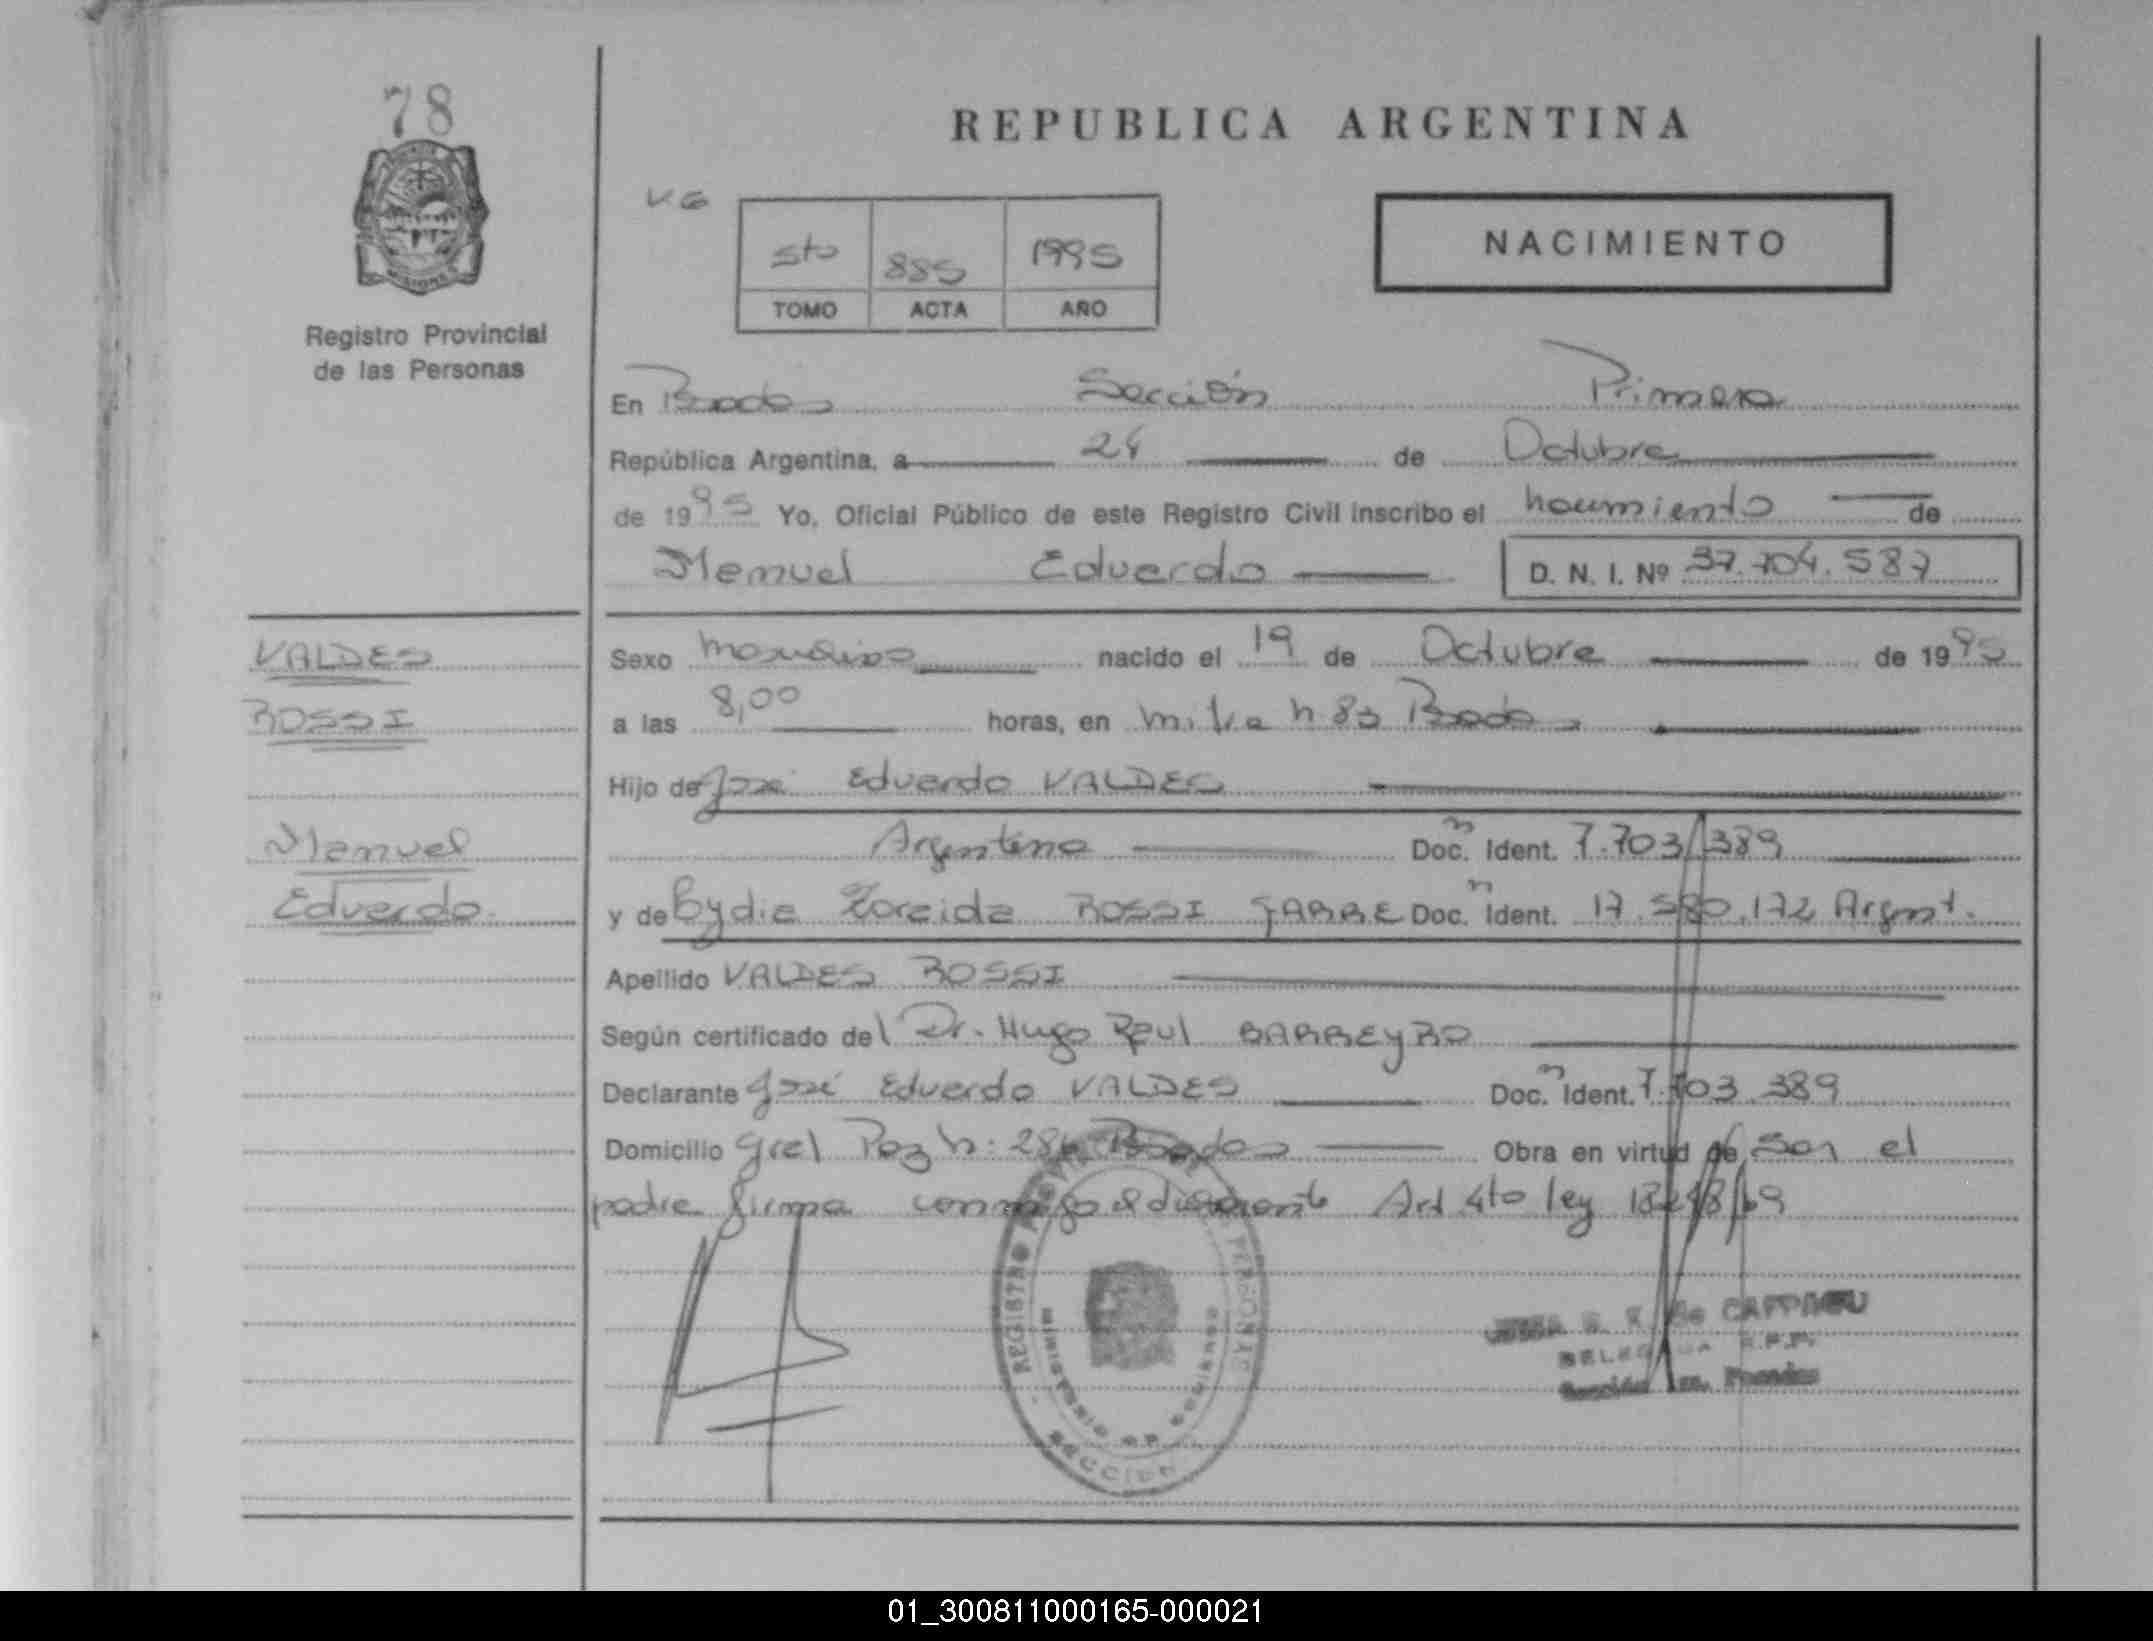 78
REPUBLICA ARGENTINA
V.G
5to 885 1995
TOMO ACTA AÑO
NACIMIENTO
Registro Provincial
de las Personas
En Posadas Sección Primera
República Argentina, a 24 de Octubre
de 1995 Yo, Oficial Público de este Registro Civil inscribo el nacimiento de
Manuel Eduardo D. N. I. Nº 37.704.587
VALDES
ROSSI
Manuel
Eduardo
Sexo masculino nacido el 19 de Octubre de 1995
a las 8,00 horas, en Mitre n 83 Posadas
Hijo de José Eduardo VALDES
Argentino Doc. Ident. 7.703.389
y de Zoraida ROSSI Doc. Ident. 17.580.172 Argent.
Apellido VALDES ROSSI
Según certificado del Dr. Hugo Raul BARREYRO
Declarante José Eduardo VALDES Doc. Ident. 7.703.389
Domicilio Gral Paz n: Posadas Obra en virtud de Ser el
padre firma conmigo el declarante Art 4to ley
REGISTRO PERSONAS
MINISTERIO DE GOBIERNO
SECCION
DELEGADA R.P.P.
Sección Posadas
01_300811000165-000021